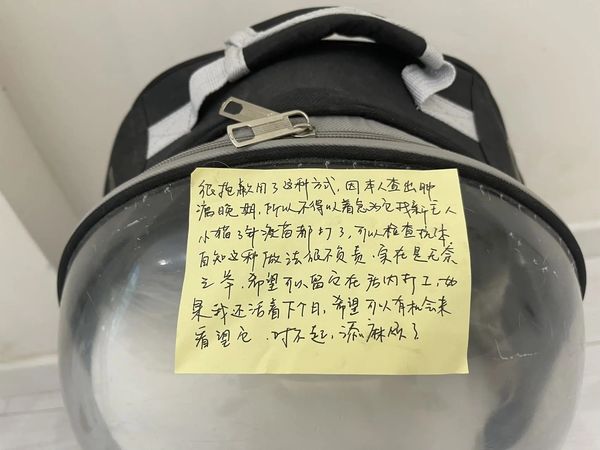 很抱歉用了这种方式，因本人查出肿
瘤晚期，所以不得以着急为它找新主人
小猫3年疫苗都打了，可以检查抗体
自知这种做法很不负责，实在是无奈
之举，希望可以留它在店内打工，如
果我还活着下个月，希望可以有机会来
看望它，对不起，添麻烦了